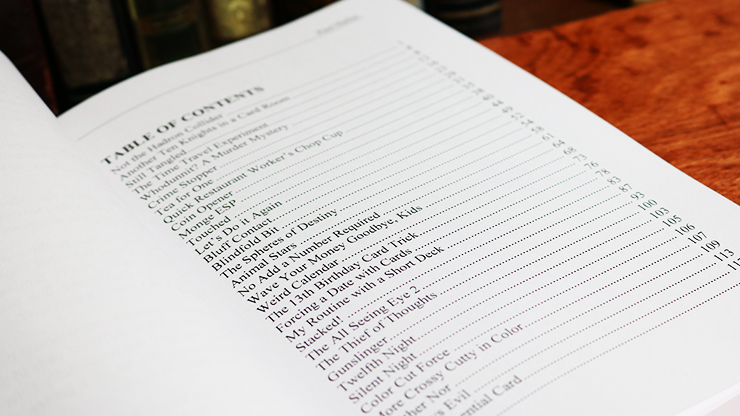 TABLE OF CONTENTS
Not the Hadron Collider
Another Ten Knights in a Card Room
Still Tangled
The Time Travel Experiment
Whodunit? A Murder Mystery
Crime Stopper
Tea for One
Quick Restaurant Worker's Chop Cup
Coin Opener
Monge ESP
Touched
Let's Do it Again
Bluff Contact
Blindfold Bit
The Spheres of Destiny
Animal Stars
No Add a Number Required
Wave Your Money Goodbye, Kids
Weird Calendar
The 13th Birthday Card Trick
Forcing a Date with Cards
My Routine with a Short Deck
Stacked!
The All Seeing Eye 2
The Thief of Thoughts
Gunslinger
Twelfth Night
Silent Night
Color Cut Force
More Crossy Cutty in Color
Nor
Evil
Card
68
73
76
78
83
87
93
100
103
105
106
107
109
113